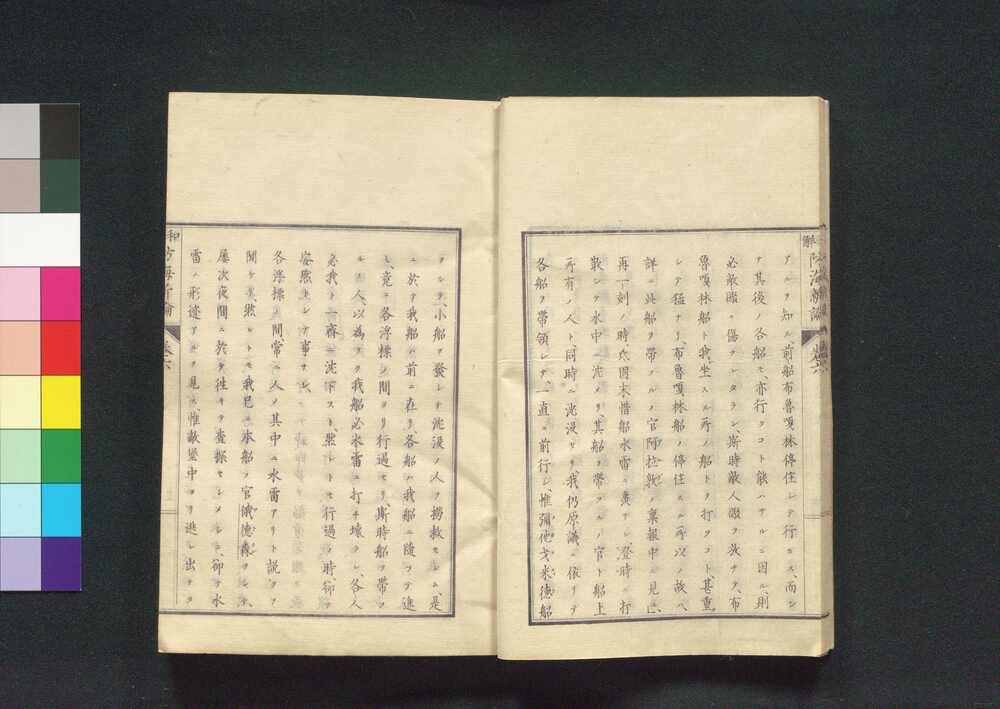 アルヲ知ル、前船布魯嘎林停住シテ行セス、而シ
テ其後ノ各船モ、亦行クコト能ハサルニ因ル、則
必敵賺ヲ傷ケシタラン、斯時敵人礟ヲ放チテ、布
魯嘎林船ト我坐スル所ノ船トヲ打ツコト、甚重
シテ猛ナリ、布魯嘎林船ノ停住スル所以ノ故ハ、
詳ニ此船ヲ帶フルノ官阿拉敦ノ稟報中ニ見ユ、
再一刻ノ時戊固木惜船水雷ニ轟サレ、登時ニ打
散シテ水中ニ沈メリ、其船ヲ帶フルノ官ト船上
所有ノ人ト、同時ニ沈沒セリ、我仍原議ニ依リテ
各船ヲ帶領シテ、一直ニ前行シ惟彌他戈米德船
ヲシテ、小船ヲ發シテ沈沒ノ人ヲ撈救セシム、是
ニ於テ我船ハ前ニ在リ、各船ハ我船ニ隨フテ進
ミ、竟ニ各浮標ノ間ヨリ行過セリ、斯時船ヲ帶フ
ルノ人、以為ラク我船必水雷ニ打チ壞ラレ、各人
必我ト一齊ニ沈下スト、然レトモ行過ノ時、卻テ
安然トシテ事ナシ、
各浮標ノ間、常ニ人ノ其中ニ水雷アリト說クヲ
聞ケリ、然レトモ我已ニ本船ノ官俄德森ヲシテ、
屢次夜間ニ於テ往キテ査探セシメシニ、卻テ水
雷ノ形迹アルヲ見ス、惟敵壘中ヨリ逃レ出ヲ